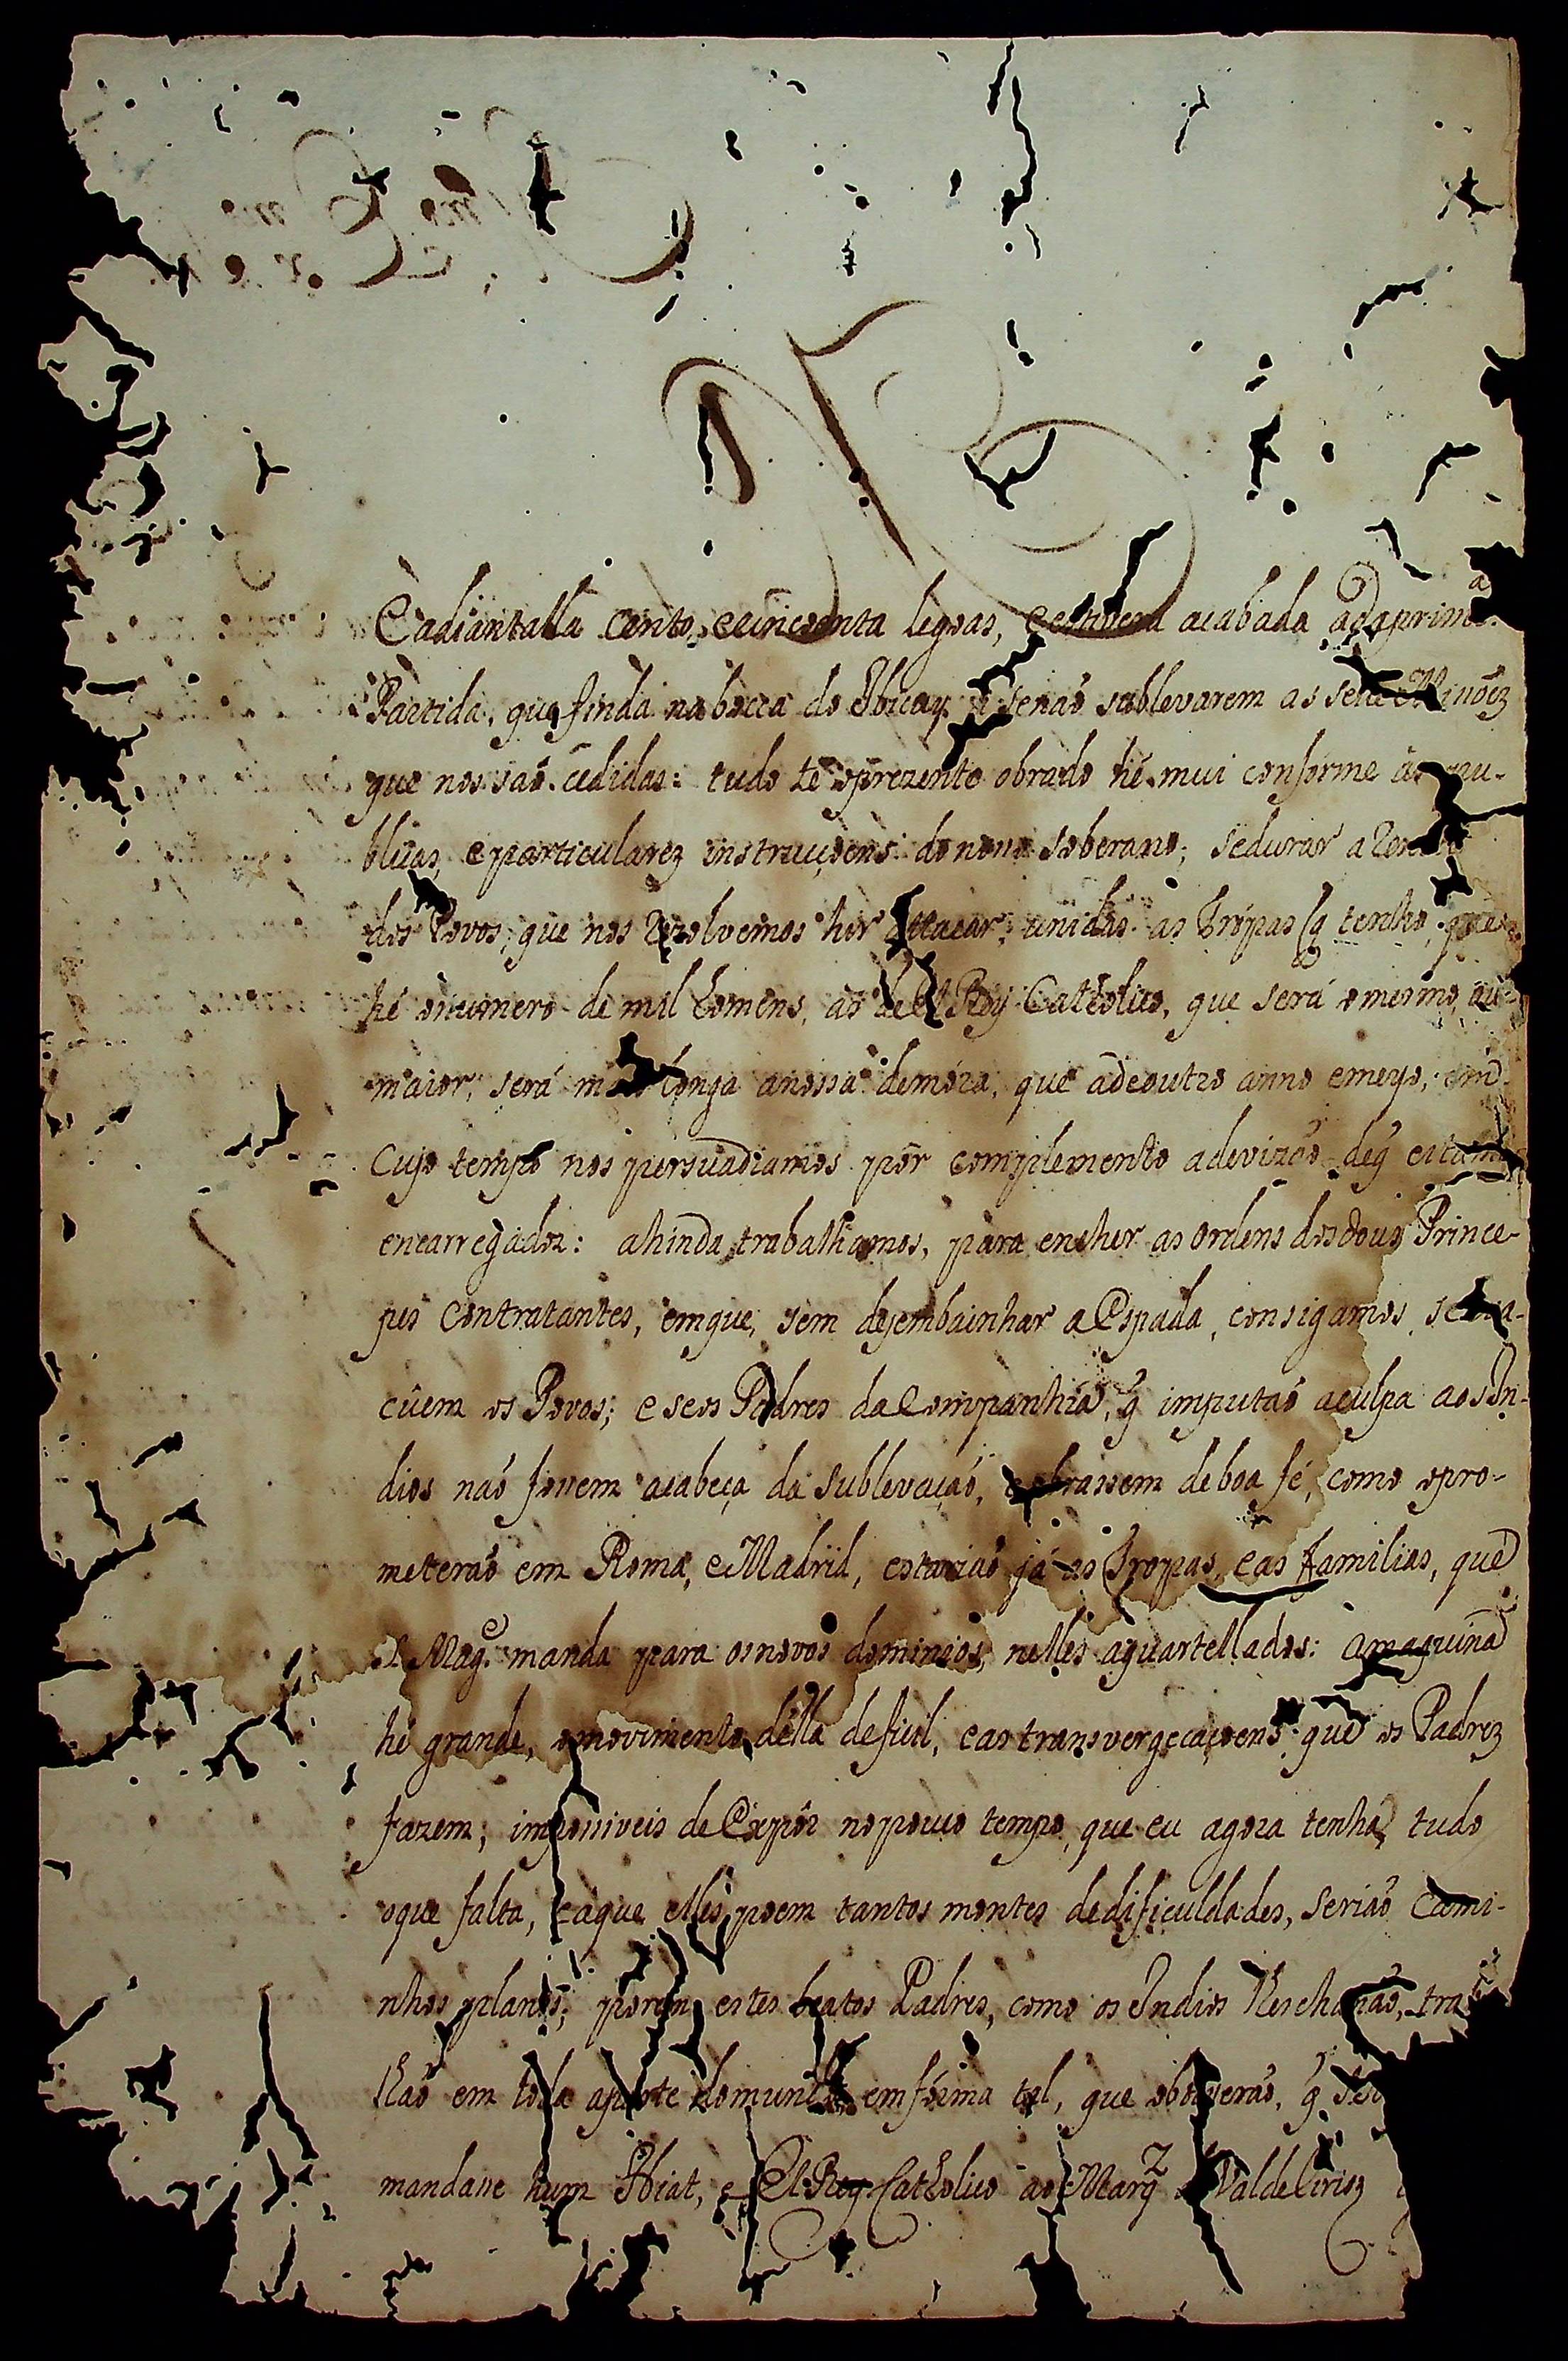 N
E adiantalla cento, e cincoenta legoas, e estivera acabada a da prim.a
Partida, que finda na bocca do Ibicuy se senaõ sublevarem as sete Miñoẽz
que nos saõ cedidas: tudo té o prezente obrado hé mui conforme ás pu-
blicas, e particularez instrucçoens do nosso Soberano; se durar a
dos Povos, que nos rezolvemos hir attacar, unidas as Tropas (q tenho, que
hé o numero de mil homens, as de El Rey Catholico, que será o mesmo, ou
maior, será mais longa a nossa demóra, que a de outro anno e meyo, em
cujo tempo nos persuadiamos pôr complemento a devizaõ de q̃ estamos
encarregados: ahinda trabalhamos, para encher as ordens dos douz Prince-
pes Contratantes, em que, sem desembainhar a Espada, consigamos, se eva-
cûem os Povos; e se os Padres da Companhia, q̃ imputaõ a culpa aos In-
dios naõ fossem a cabeça da sublevaçaõ, e obrassem de boa fé, como o pro-
meteraõ em Roma, e Madrid, estariaõ já as Tropas, e as familias, que
S. Mag.e manda para os novos dominios, nelles aquartellados: a maquina
hé grande, o movimento della deficil, e as transvergecaçoens que os Padrez
fazem; impossiveis de Expôr no pouco tempo, que eu agora tenha, tudo
o que falta, e a que elles poem tantos montes de dificuldades, seriaõ cami-
nhos planos; porem estes beatos Padres, como os Indios
em toda a parte do mundo em fórma tal, que
mandasse hum Abiat, e El Rey Catholico ao Marq.z de Valdelirioz